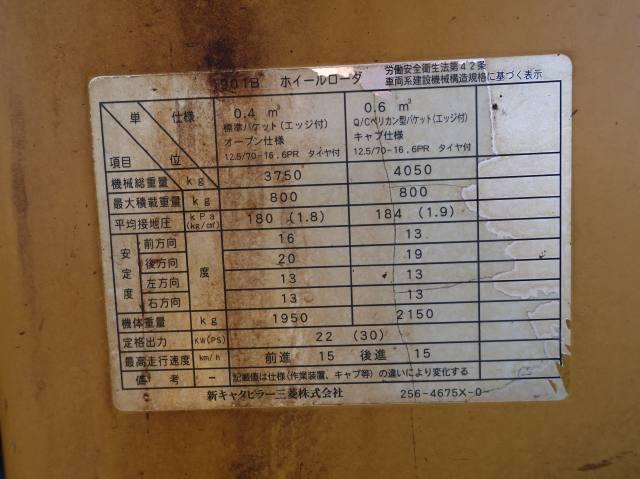 901B ホイールローダ
労働安全衛生法第42条
車両系建設機械構造規格に基づく表示
単 仕様 0.4 m³ 0.6 m³
標準バケット(エッジ付) Q/Cペリカン型バケット(エッジ付)
オープン仕様 キャブ仕様
項目 位 12.5/70-16.6PR タイヤ付 12.5/70-16.6PR タイヤ付
機械総重量 kg 3750 4050
最大積載重量 kg 800 800
平均接地圧 kPa (kg/cm²) 180 (1.8) 184 (1.9)
安定度 前方向 度 16 13
後方向 20 19
左方向 13 13
右方向 13 13
機体重量 kg 1950 2150
定格出力 KW(PS) 22 (30)
最高走行速度 km/h 前進 15 後進 15
備考 − 記載値は仕様(作業装置、キャブ等)の違いにより変化する
新キャタピラー三菱株式会社 256-4675X-0